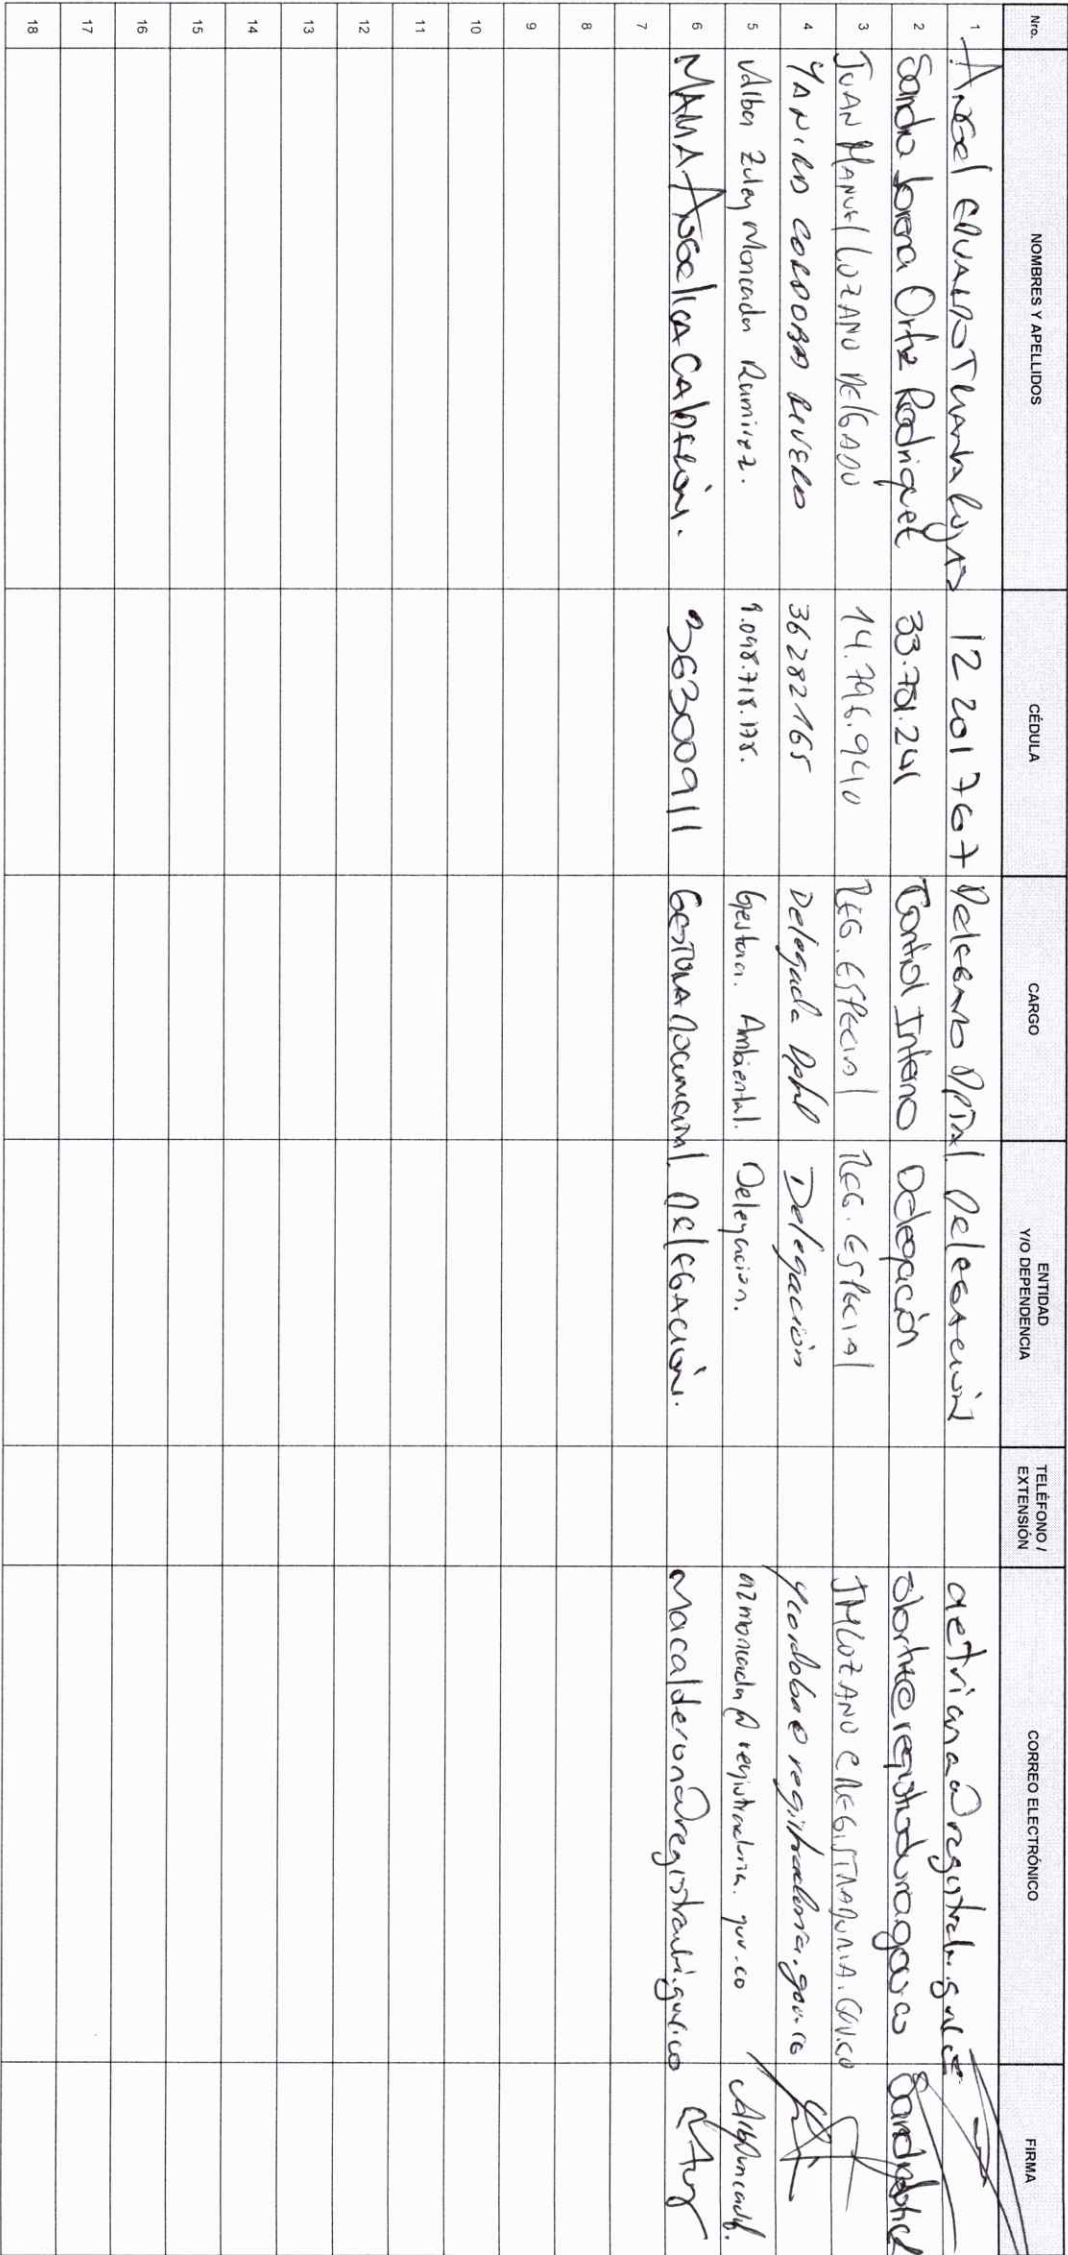 Nro. NOMBRES Y APELLIDOS CÉDULA CARGO ENTIDAD Y/O DEPENDENCIA TELÉFONO / EXTENSIÓN CORREO ELECTRÓNICO FIRMA
1 Angel EDUARDO TRIANA ROJAS 12 201 767 DELEGADO DPTAL Delegación aetriana@registraduria.gov.co
2 Sandra Lorena Ortiz Rodriguez 33.701.241 Control Interno Delegación slortiz@registraduria.gov.co
3 JUAN MANUEL LOZANO DELGADO 14.796.940 REG. ESPECIAL REG. ESPECIAL JMLOZANO@REGISTRADURIA.GOV.CO
4 YANIRA CORDOBA RIVERA 36282165 Delegada Dptal Delegación ycordoba@registraduria.gov.co
5 Zuley Moncada Ramirez. 1.098.718.178. Gestora. Ambiental. Delegacion. azmoncada@registraduria.gov.co
6 MARIA ANGELICA CALDERÓN. 36300911 GESTORA DOCUMENTAL DELEGACIÓN. macalderon@registraduria.gov.co
7
8
9
10
11
12
13
14
15
16
17
18